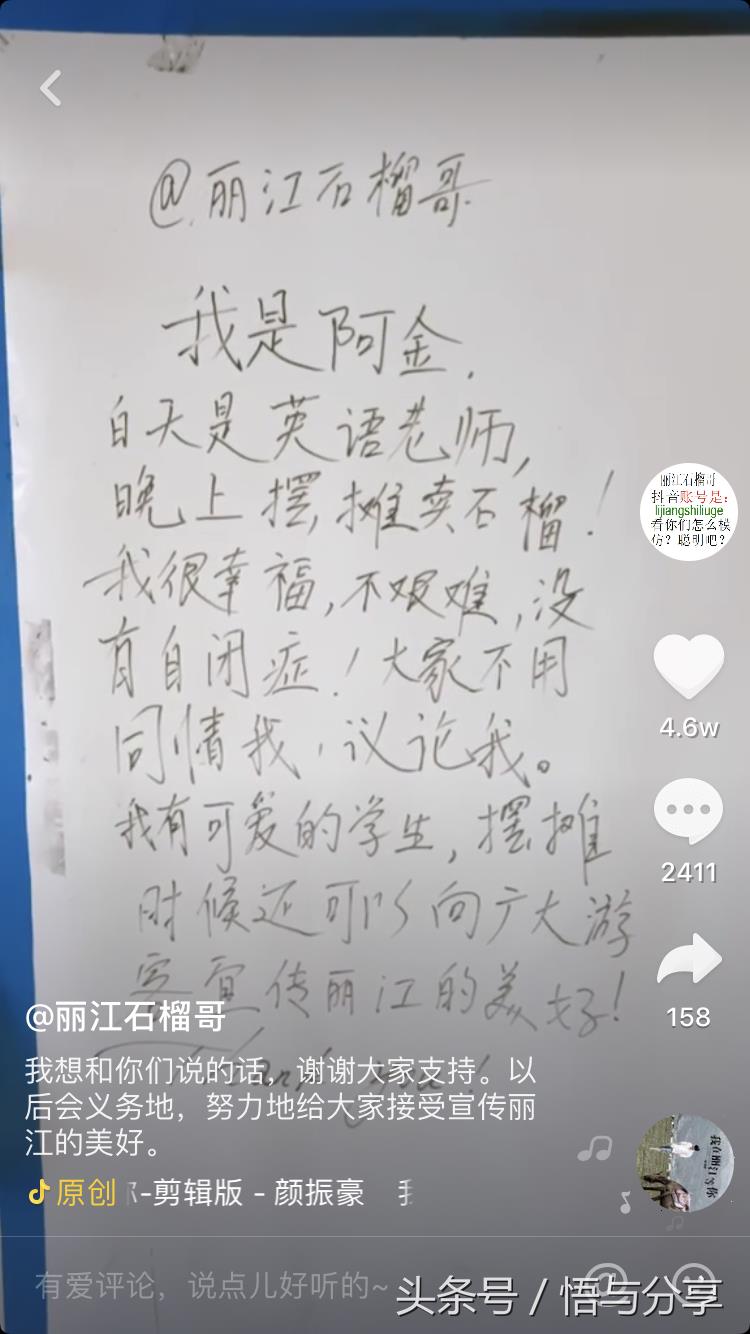 @丽江石榴哥
我是阿金.
白天是英语老师,
晚上摆,摊卖石榴!
我很幸福,不艰难,没
有自闭症!大家不用
同情我,议论我。
我有可爱的学生,摆摊
时候还可以向广大游
客宣传丽江的美好!
丽江石榴哥
抖音账号是：
lijiangshiliuge
看你们怎么模
仿？聪明吧？
4.6w
2411
158
@丽江石榴哥
我想和你们说的话，谢谢大家支持。以
后会义务地，努力地给大家接受宣传丽
江的美好。
原创 -剪辑版 - 颜振豪
有爱评论，说点儿好听的~
头条号 / 悟与分享